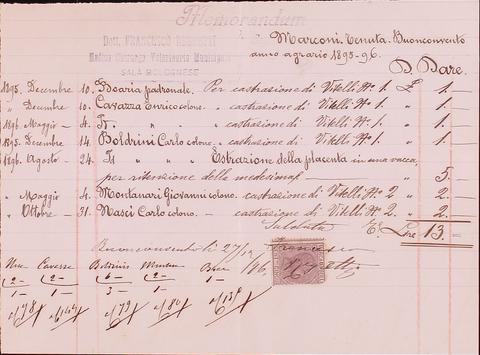 Memorandum
Dott. FRANCESCO
Medico Chirurgo Veterinario Municipale
SALA BOLOGNESE
Marconi. Tenuta. Buonconvento
anno agrario 1895-96.
D. Dare.
1895. Decembre 10. Boaria padronale. Per castrazione di Vitelli No. 1. £ 1.—
„ Decembre 10. Cavazza Enrico colono. „ castrazione di Vitelli. No. 1. „ 1.—
1896. Maggio — 4. „ „ castrazione di Vitelli No. 1. „ 1.—
1895. Decembre 14. Boldrini Carlo colono. „ castrazione di Vitelli. No. 1. „ 1.—
1896. Agosto — 24. „ „ „ Estrazione della placenta in una vacca,
per ritenzione delle medesima — „ 5.—
„ Maggio — 4. Montanari Giovanni colono. castrazione di Vitelli No. 2. „ 2.—
„ Ottobre — 31. Masci Carlo colono. — castrazione di Vitelli. No. 2. „ 2.—
Saldata Lire 13.—
Buonconvento li 27/12
Francesco
/96.
Cavazza Boldrini
2— 2— 6— 2—
1— 1— 3— 1— 1—